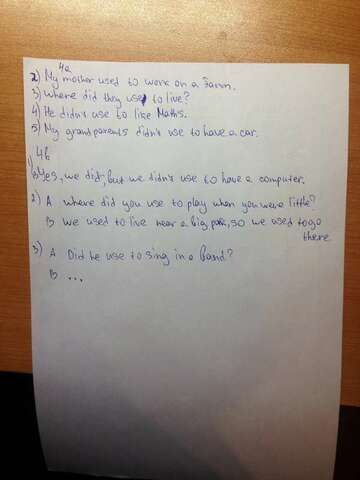 4a
2) My mother used to work on a farm.
3) Where did they use to live?
4) He didn't use to like Maths.
5) My grandparents didn't use to have a car.
4b
1) B Yes, we did, but we didn't use to have a computer.
2) A where did you use to play when you were little?
B we used to live near a big park, so we used to go
there
3) A Did he use to sing in a band?
B ...